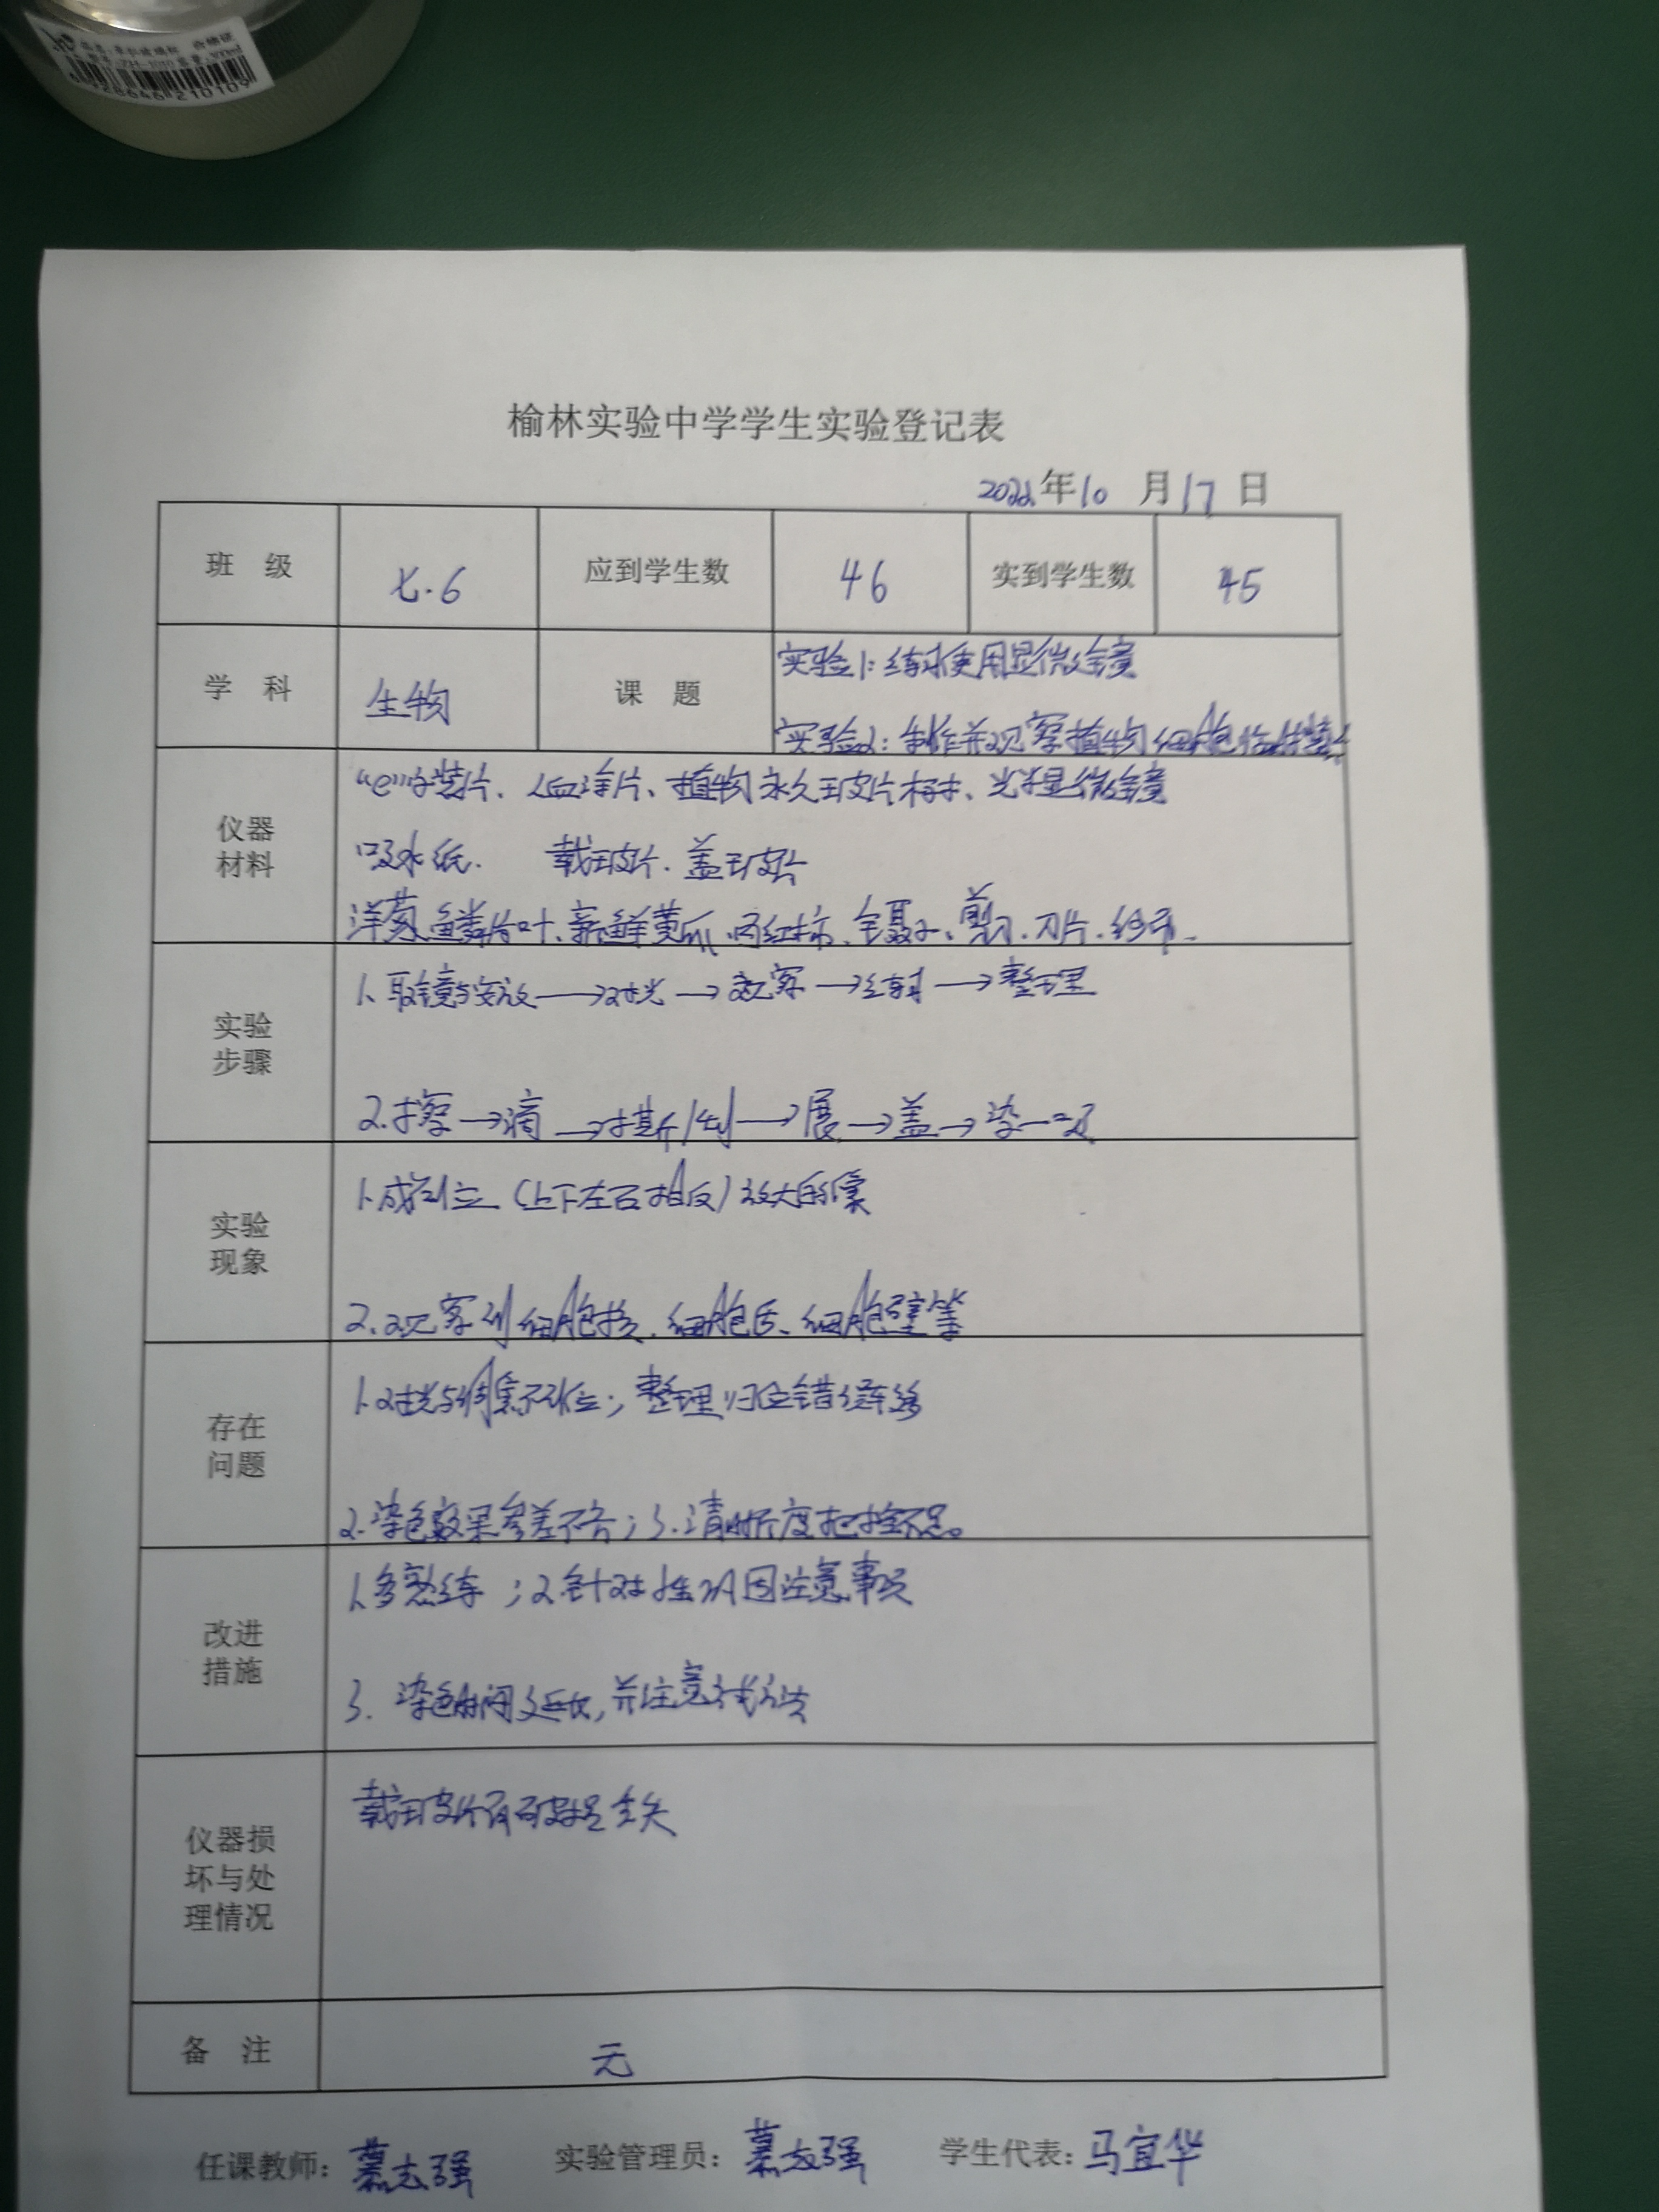 合格证
ZH-1010
210109
榆林实验中学学生实验登记表
2022年10月17日
班 级 七.6 应到学生数 46 实到学生数 45
学 科 生物 课 题 实验1:练习使用显微镜
实验2:制作并观察植物细胞临时装片
仪器材料 “e”字装片、人血涂片、植物永久玻片标本、光学显微镜
吸水纸. 载玻片.盖玻片
洋葱鳞片叶、新鲜黄瓜、西红柿、镊子、剪刀.刀片.纱布.
实验步骤 1、取镜与安放→对光→观察→练习→整理
2.擦→滴→撕/刮→展→盖→染→吸
实验现象 1.成倒立(上下左右相反)放大的像
2.观察到细胞核、细胞质、细胞壁等
存在问题 1.对光与调焦不到位;整理归位错误较多
2.染色效果参差不齐;3.清晰度把控不足。
改进措施 1.多熟练;2.针对性巩固注意事项
3. 染色时间延长,并注意方法
仪器损坏与处理情况 载玻片有破损
备 注 无
任课教师:慕志强 实验管理员:慕志强 学生代表:马宜华